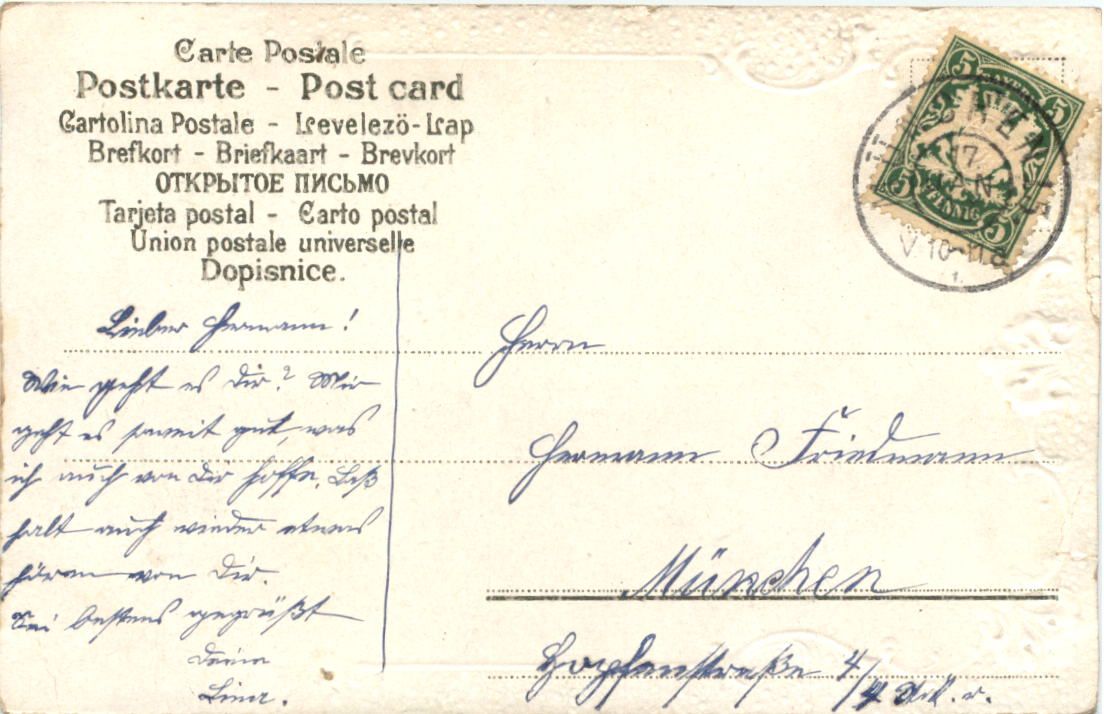 Carte Postale
Postkarte - Post card
Cartolina Postale - Levelező-Lap
Brefkort - Briefkaart - Brevkort
ОТКРЫТОЕ ПИСЬМО
Tarjeta postal - Carto postal
Union postale universelle
Dopisnice.
5 BAYERN 5
5 PFENNIG 5
MÜNCHEN
17.
V. 10-11
Lieber Hermann!
Wie geht es Dir? Mir
geht es soweit gut, was
ich auch von Dir hoffe. Laß
halt auch wieder etwas
hören von Dir.
Sei bestens gegrüßt
Deine
Lina.
Herrn
Hermann Friedmann
München
Hopfenstraße 4/
4 r.